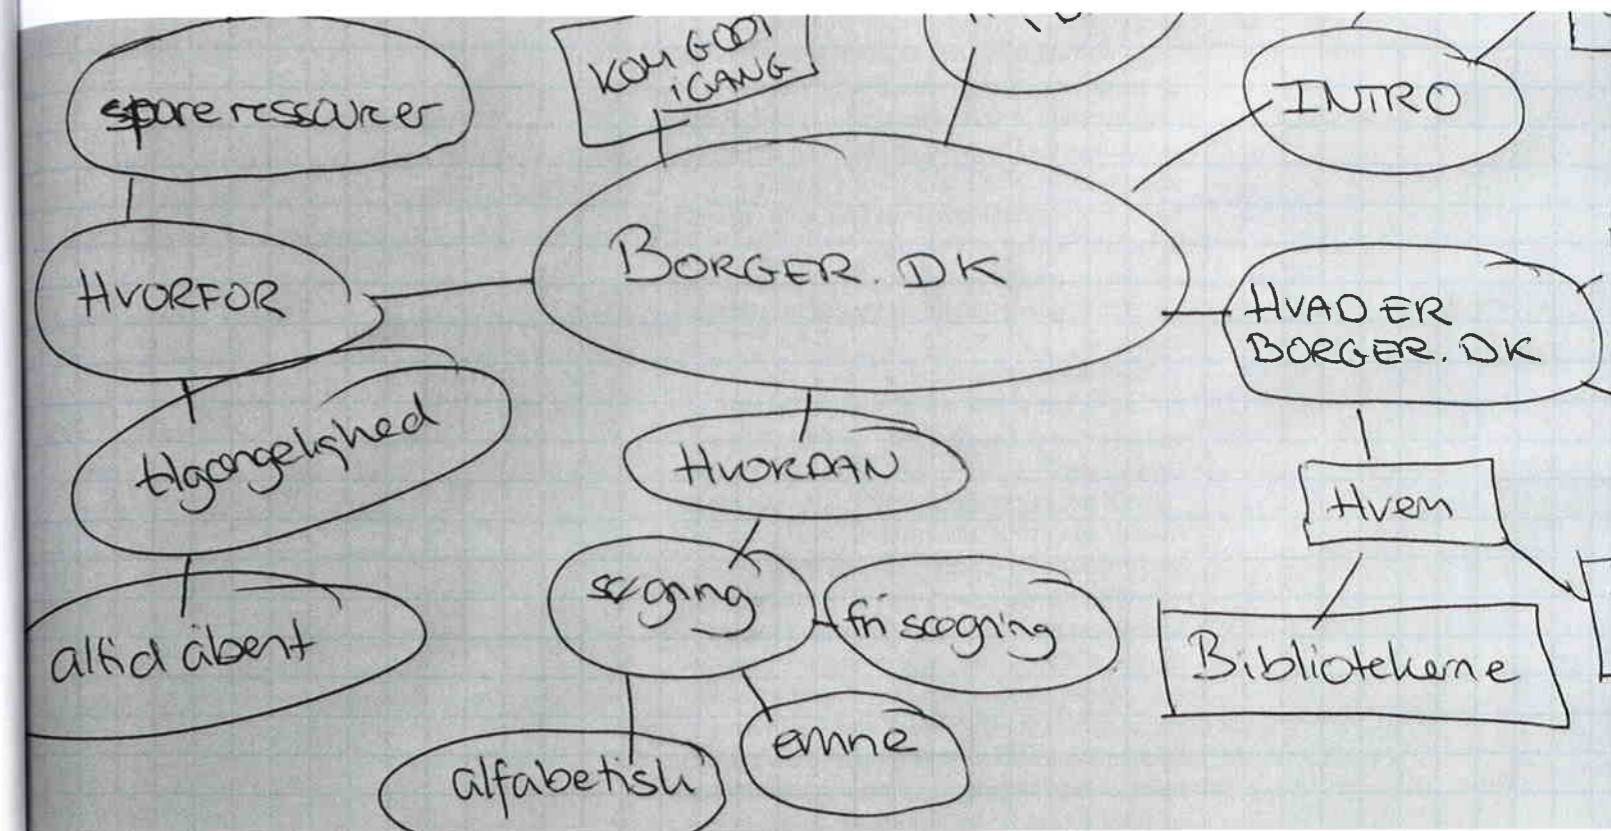 spare ressourcer
KOM GODT
IGANG
INTRO
HVORFOR
BORGER.DK
HVAD ER
BORGER.DK
tilgængelighed
HVORDAN
Hvem
søgning
fri søgning
altid åbent
Bibliotekerne
emne
alfabetisk